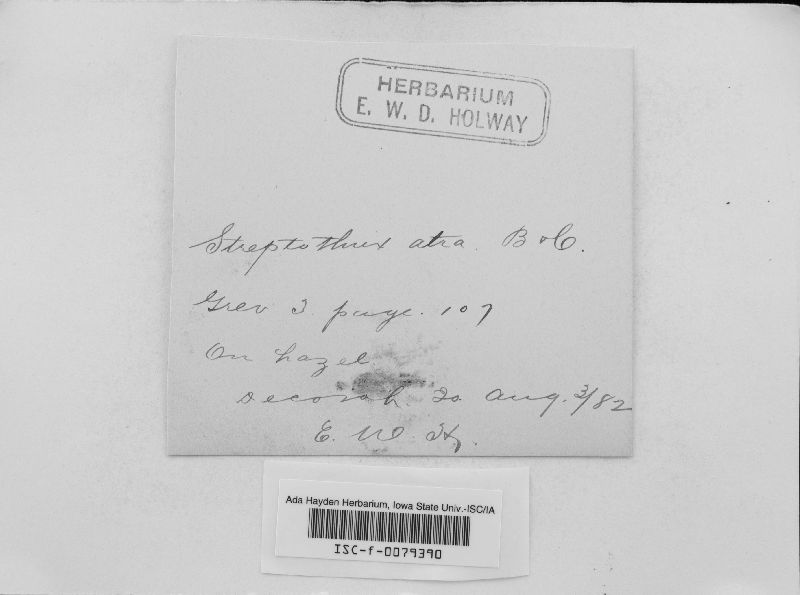 HERBARIUM
E. W. D. HOLWAY
Streptothrix atra. B & C.
Grev 3. page. 107
On hazel.
Decorah. Io. Aug. 3/82
E. W. H.
Ada Hayden Herbarium, Iowa State Univ.-ISC/IA
ISC-f-0079390